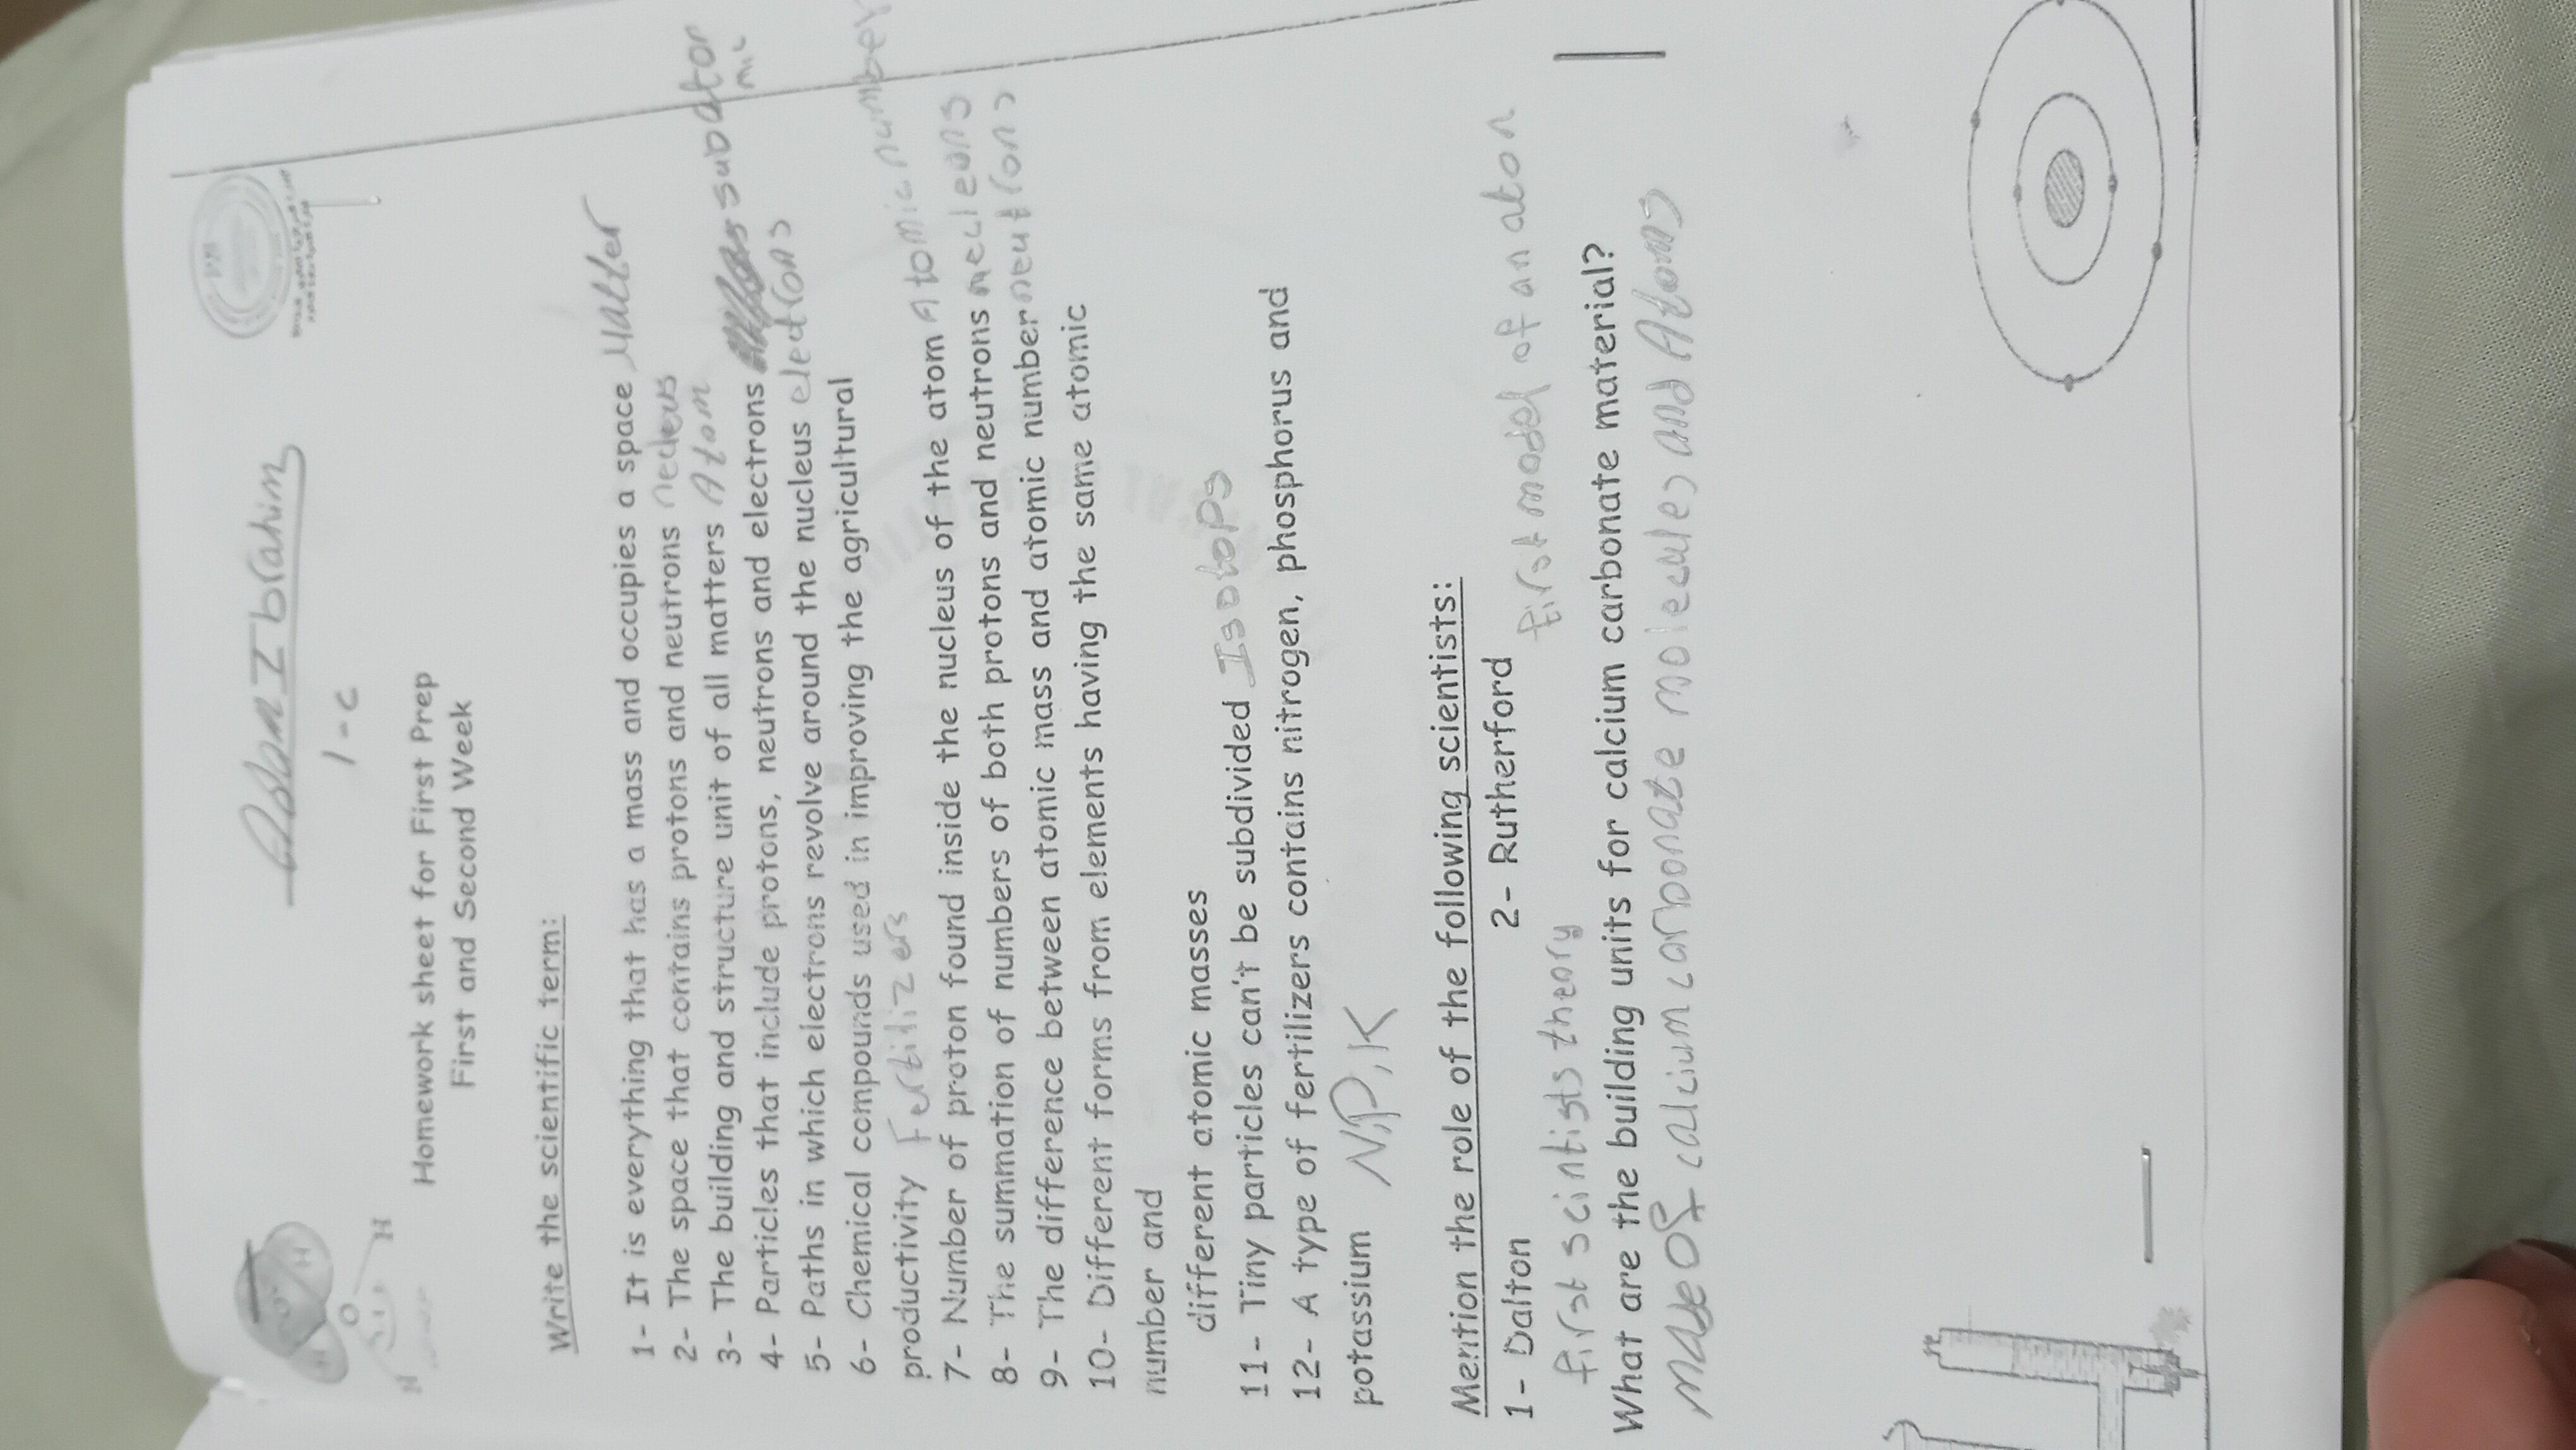 Adam Ibrahim
1-c
O
H
H
O
H
H
Homework sheet for First Prep
First and Second Week
Write the scientific term:
1- It is everything that has a mass and occupies a space Matter
2- The space that contains protons and neutrons necleus
3- The building and structure unit of all matters Atom
4- Particles that include protons, neutrons and electrons subatomic
5- Paths in which electrons revolve around the nucleus electrons
6- Chemical compounds used in improving the agricultural
productivity Fertilizers
7- Number of proton found inside the nucleus of the atom Atomic number
8- The summation of numbers of both protons and neutrons necleons
9- The difference between atomic mass and atomic number neutrons
10- Different forms from elements having the same atomic
number and
different atomic masses
11- Tiny particles can't be subdivided Isotops
12- A type of fertilizers contains nitrogen, phosphorus and
potassium N,P,K
Mention the role of the following scientists:
1- Dalton 2- Rutherford first model of an aton
first scintists theory
What are the building units for calcium carbonate material?
made OF calcium carbonate molecules and Atoms